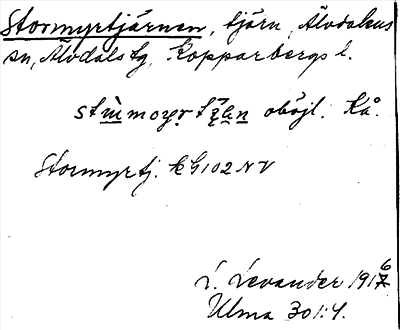 Stormyrtjärnen, tjärn, Älvdalens
sn, Älvdals tg, Kopparbergs l.
oböjl. Kå.
Stormyrtj. kG102 NV
L. Levander 1916
Ulma 301:4.